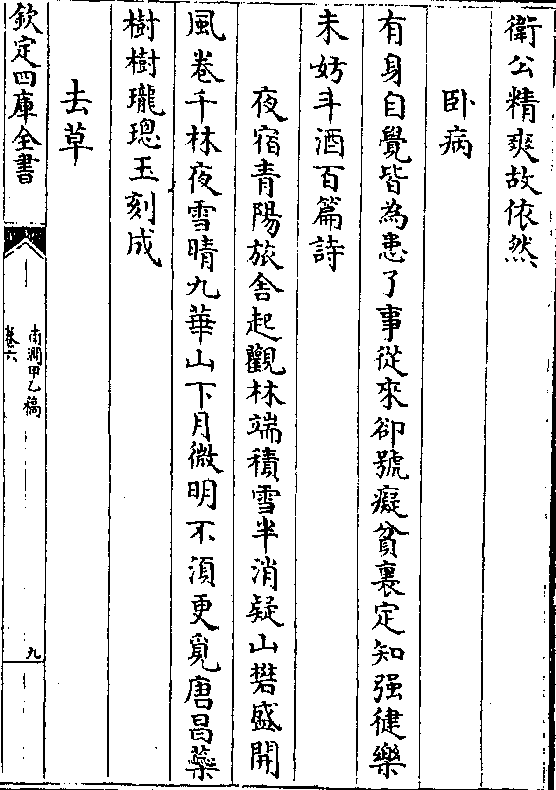 衛公精爽故依然
卧病
有身自覺皆為患了事從來卻號癡貧裏定知强健樂
未妨斗酒百篇詩
夜宿青陽旅舍起觀林端積雪半消疑山礬盛開
風卷千林夜雪晴九華山下月微明不湏更覓唐昌蘂
樹樹瓏璁玉刻成
去草
欽定四庫全書
南澗甲乙稿
卷六
九